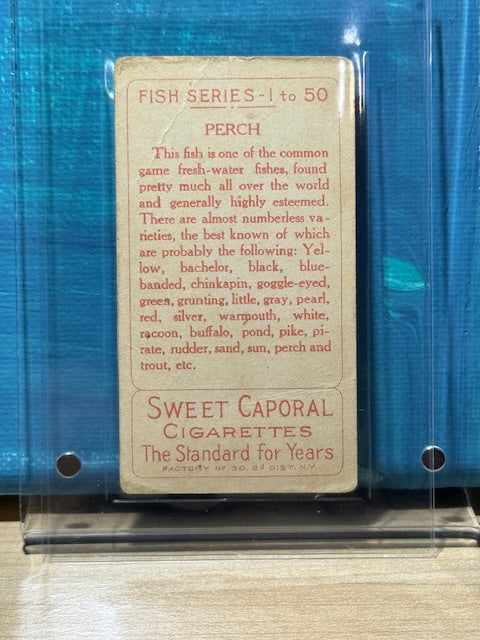 FISH SERIES-1 to 50
PERCH
This fish is one of the common
game fresh-water fishes, found
pretty much all over the world
and generally highly esteemed.
There are almost numberless va-
rieties, the best known of which
are probably the following: Yel-
low, bachelor, black, blue-
banded, chinkapin, goggle-eyed,
green, grunting, little, gray, pearl,
red, silver, warmouth, white,
racoon, buffalo, pond, pike, pi-
rate, rudder, sand, sun, perch and
trout, etc.
SWEET CAPORAL
CIGARETTES
The Standard for Years
FACTORY Nº 30, 2ᵈ DIST. N.Y.